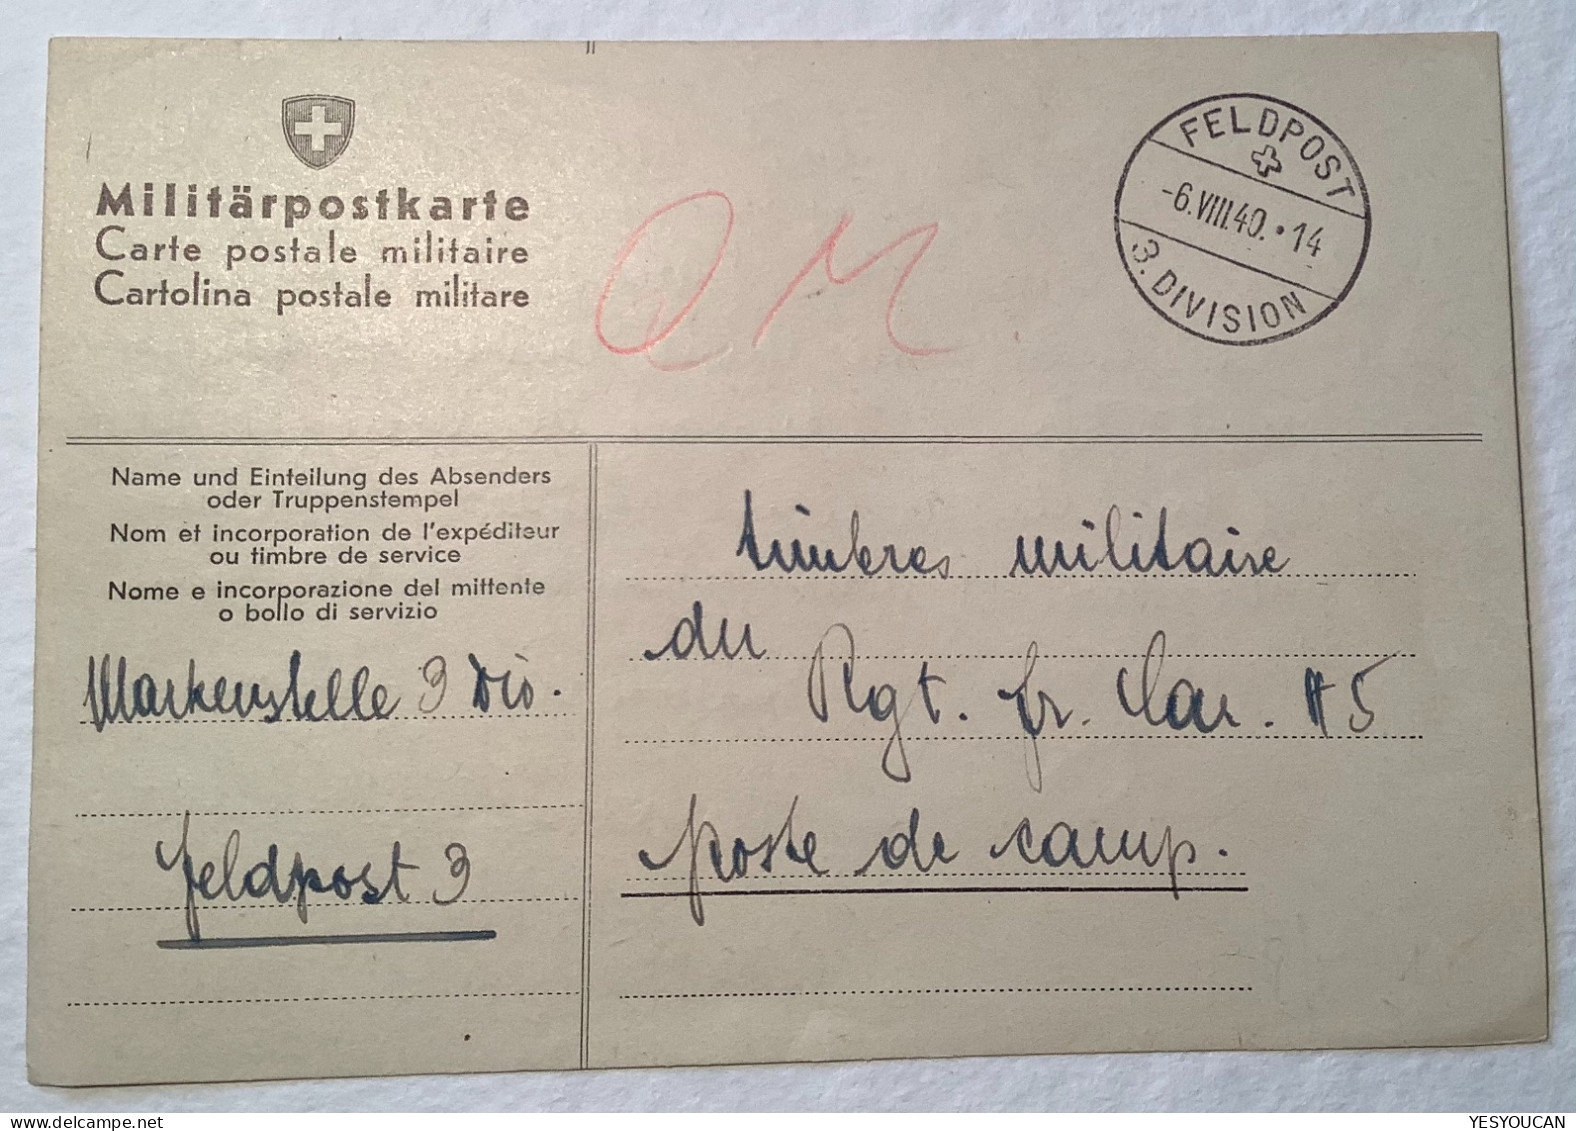 Militärpostkarte
Carte postale militaire
Cartolina postale militare
FELDPOST
-6.VIII.40.•14
3. DIVISION
Name und Einteilung des Absenders
oder Truppenstempel
Nom et incorporation de l'expéditeur
ou timbre de service
Nome e incorporazione del mittente
o bollo di servizio
Markenstelle 3 Div.
Feldpost 3
timbres militaire
du
Rgt. fr. Car. 5
poste de camp.
YESYOUCAN